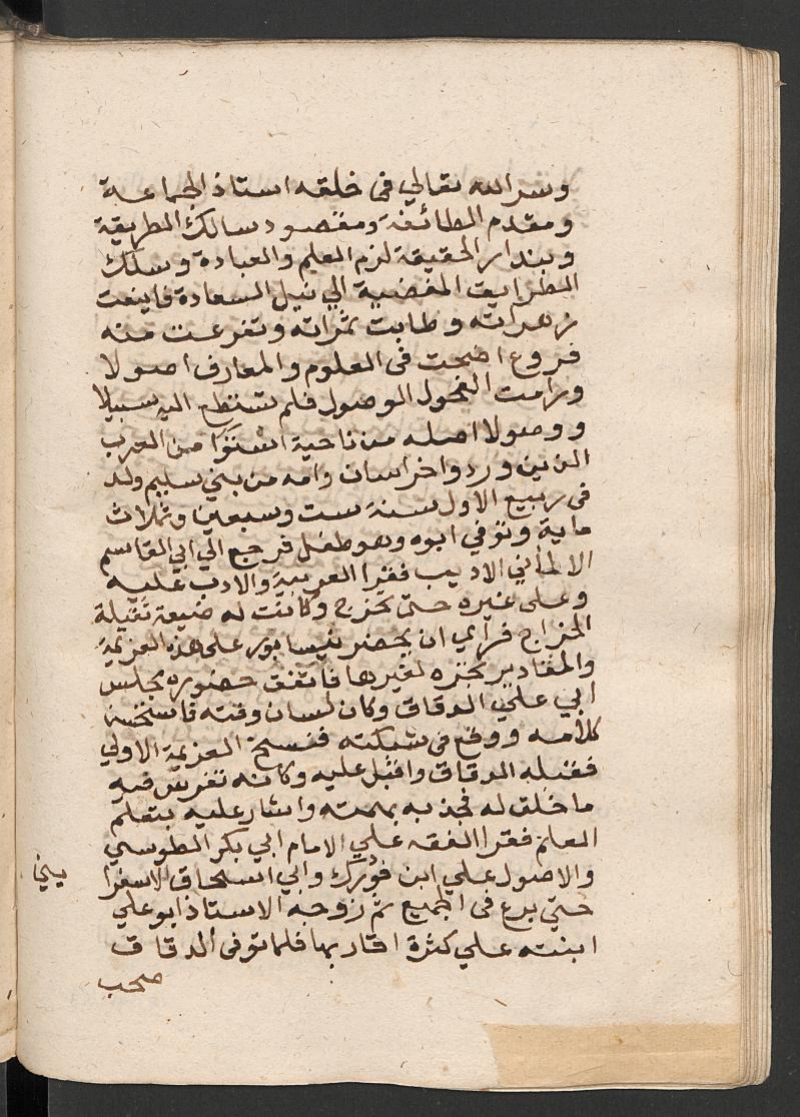 وسر الله تعالي في خلقه استاذ الجماعة
ومقدم الطائفة ومقصود سالك الطريقة
وبندار الحقيقة لزم العلم والعبادة وسلك
الطرايق المفضية الي نيل السعادة فاينعت
زهراته وطابت ثمراته وتفرعت منه
فروع اضحت في العلوم والمعارف اصولا
ورامت الفحول الوصول فلم تستطع اليه سبيلا
ووصولا اصله من ناحية استوا من العرب
الذين وردوا خراسان وامه من بني سليم ولد
في ربيع الاول سنة ست وسبعين وثلاث
ماية وتوفي ابوه وهو طفل فرجع الي ابي القاسم
الالماني الاديب فقرا العربية والادب عليه
وعلى غيره حتى تخرج وكانت له ضيعة ثقيلة
الخراج فراي ان يحضر نيسابور على هذه العزيمة
والمقادير تجره لغيرها فاتفق حضوره مجلس
ابي علي الدقاق وكان لسان وقته فاستحسن
كلامه ووقع في شبكته ففسخ العزيمة الاولي
فقبله الدقاق واقبل عليه وكانه تفرس فيه
ما خلق له فجذبه بهمته واشار عليه بتعلم
العلم فقرا الفقه علي الامام ابي بكر الطوسي
والاصول علي ابن فورك وابي اسحاق الاسفرا
يني
حتي برع في الجميع ثم زوجه الاستاذ ابو علي
ابنته علي كثرة اقاربها فلما توفي الدقاق
صحب